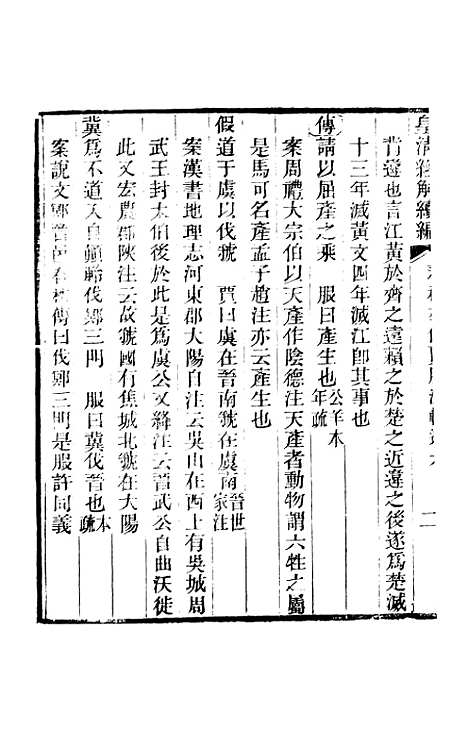 皇清經解續編
二
背違也言江黃於齊之遠賴之於楚之近違之後遂爲楚滅
十三年滅黃文四年滅江卽其事也
傳請以屈產之乘 服曰產生也公羊本年疏
案周禮大宗伯以天產作陰德注天產者動物謂六牲之屬
是馬可名產孟子趙注亦云產生也
假道于虞以伐虢 賈曰虞在晉南虢在虞南晉世家注
案漢書地理志河東郡大陽自注云吳山在西上有吳城周
武王封太伯後於此是爲虞公又絳注云晉武公自曲沃徙
此又宏農郡陝注云故虢國有焦城北虢在大陽
冀爲不道入自顛軨伐鄍三門 服曰冀伐晉也本疏
案說文鄍晉邑春秋傳曰伐鄍三門是服許同義